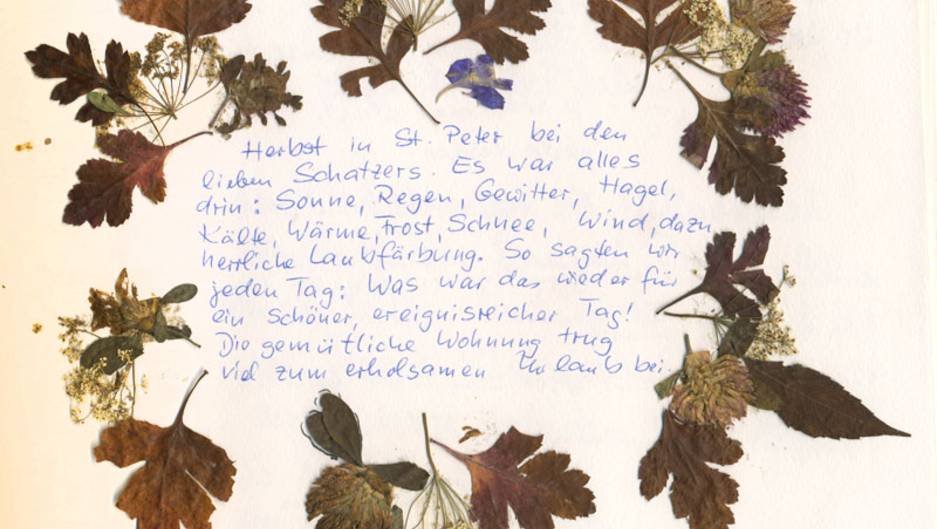 Herbst in St. Peter bei den
lieben Schatzers. Es war alles
drin: Sonne, Regen, Gewitter, Hagel,
Kälte, Wärme, Frost, Schnee, Wind, dazu
herrliche Laubfärbung. So sagten wir
jeden Tag: Was war das wieder für
ein schöner, ereignisreicher Tag!
Die gemütliche Wohnung trug
viel zum erholsamen Urlaub bei.